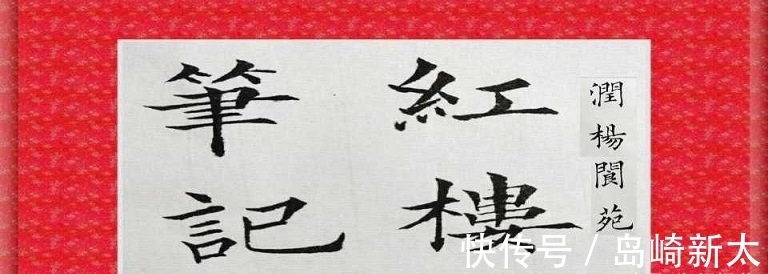 潤楊閬苑
紅樓
筆記
快传号 / 岛崎新太